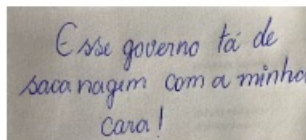 Esse governo tá de
sacanagem com a minha
cara!